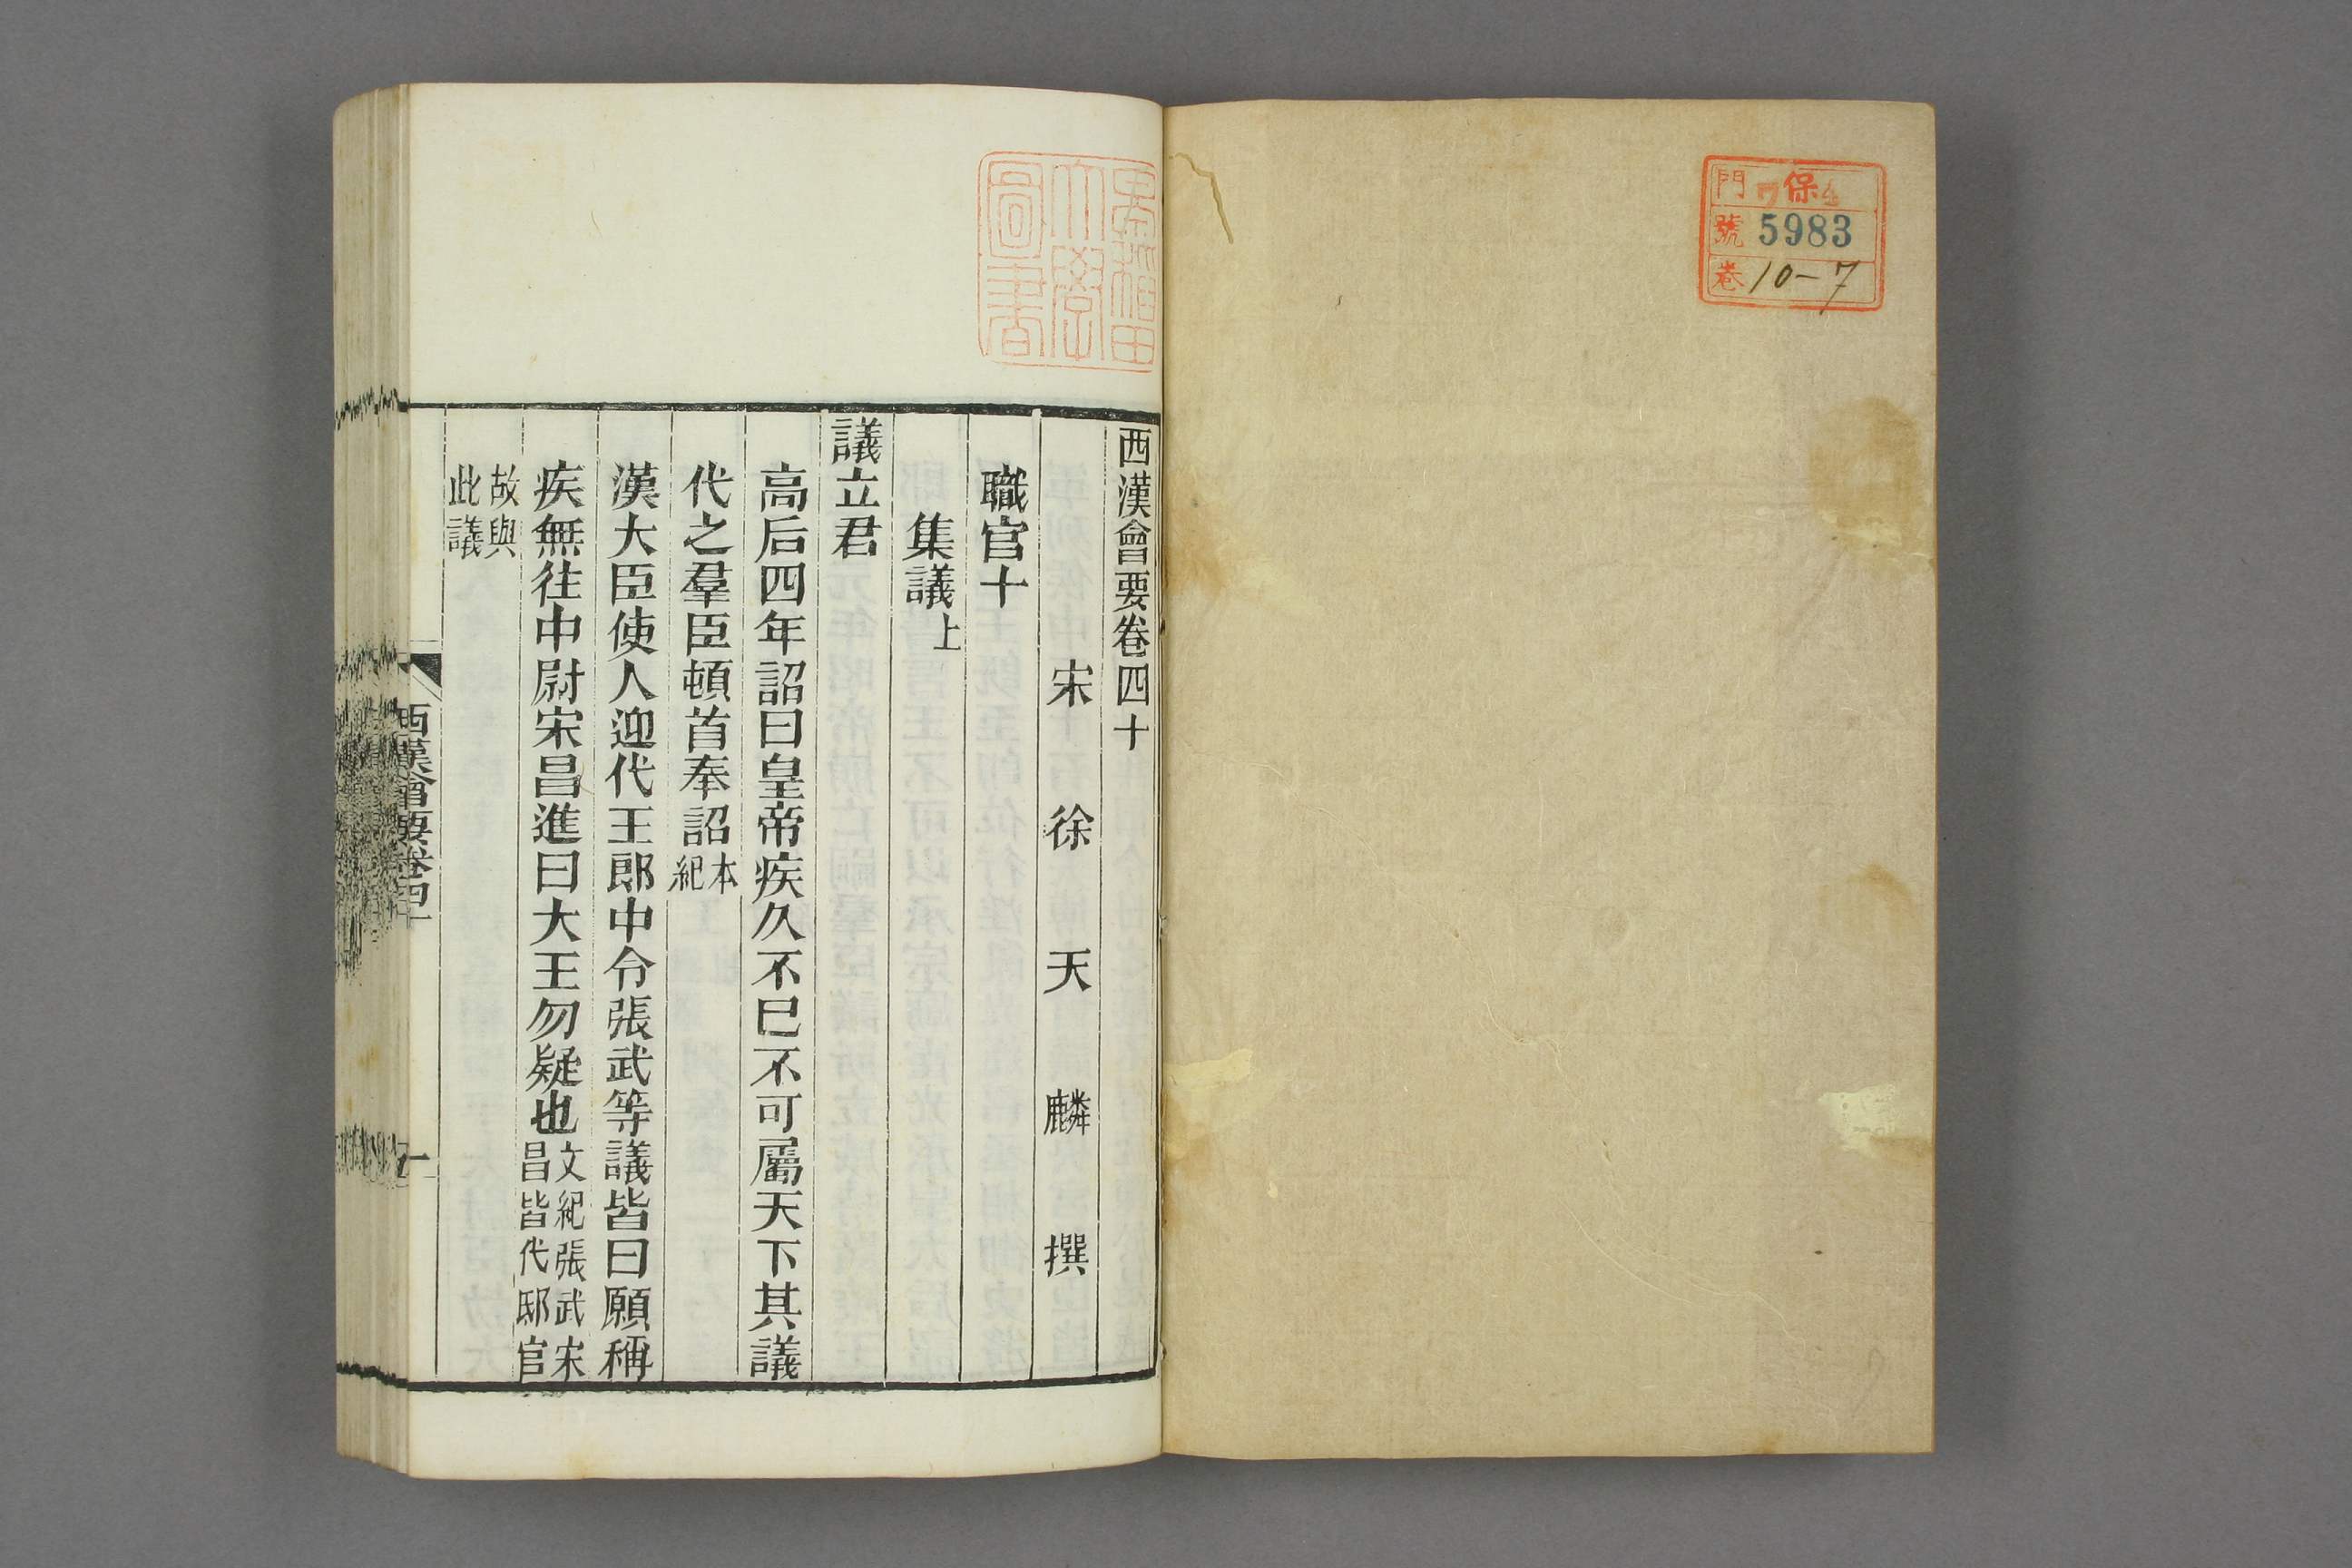 門 保
號 5983
卷 10-7
早稲田
大學
圖書
西漢會要卷四十
宋 徐 天 麟 撰
職官十
集議上
議立君
高后四年詔曰皇帝疾久不已不可屬天下其議
代之羣臣頓首奉詔本紀
漢大臣使人迎代王郎中令張武等議皆曰願稱
疾無往中尉宋昌進曰大王勿疑也文紀張武宋昌皆代邸官
故與此議
西漢會要卷四十
一